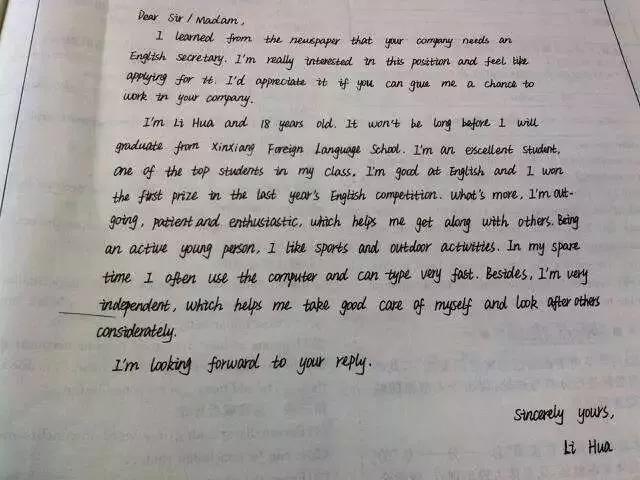 Dear Sir / Madam,
I learned from the newspaper that your company needs an
English secretary. I'm really interested in this position and feel like
applying for it. I'd appreciate it if you can give me a chance to
work in your company.
I'm Li Hua and 18 years old. It won't be long before I will
graduate from Xinxiang Foreign Language School. I'm an escellent student,
one of the top students in my class. I'm good at English and I won
the first prize in the last year's English competition. What's more, I'm out-
going, patient and enthusiastic, which helps me get along with others. Being
an active young person, I like sports and outdoor activities. In my spare
time I often use the computer and can type very fast. Besides, I'm very
independent, which helps me take good care of myself and look after others
considerately.
I'm looking forward to your reply.
Sincerely yours,
Li Hua